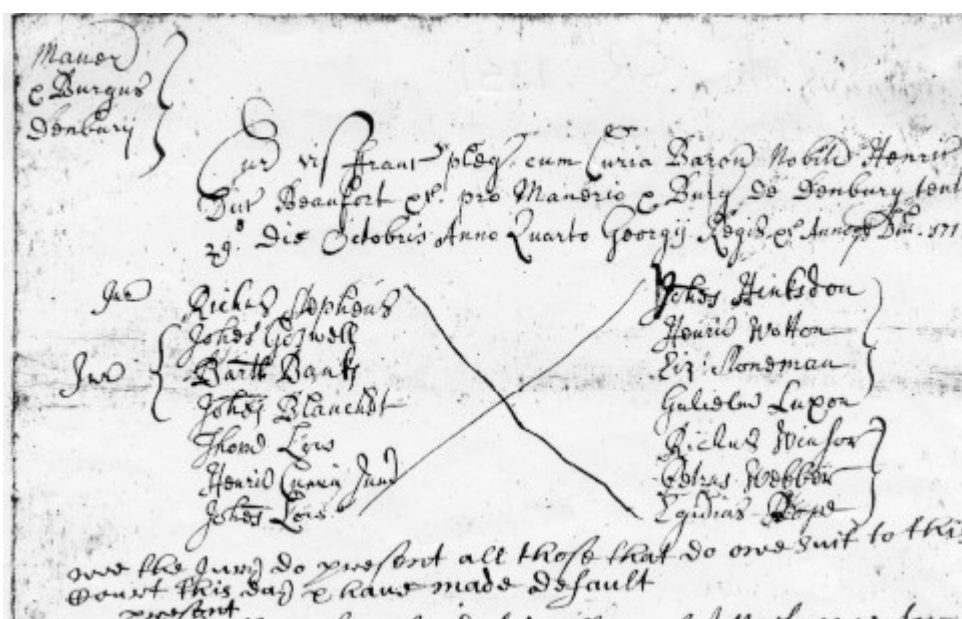 Maner
& Burgus
Denbury
Cur vis ffranc pleg cum Curia Baron Nobili Henrici
Ducis Beaufort &c. pro Manerio & Burg de Denbury tent
29º die Octobris Anno Quarto Georgij Regis &c Annoq Dni. 171
Jur Richus Stephens
Johes Gozwell
Jur Barth Banks
Johes Blanchdt
Thomas
Henric Junr
Johes
Johes Hinksdon
Henric Wotton
Eiz: Stoneman
Gulielm Luxon
Richus Winsor
Petrus Webber
Egidius Pope
wee the Jury do present all those that do owe suit to this
Court this day & have made default
present